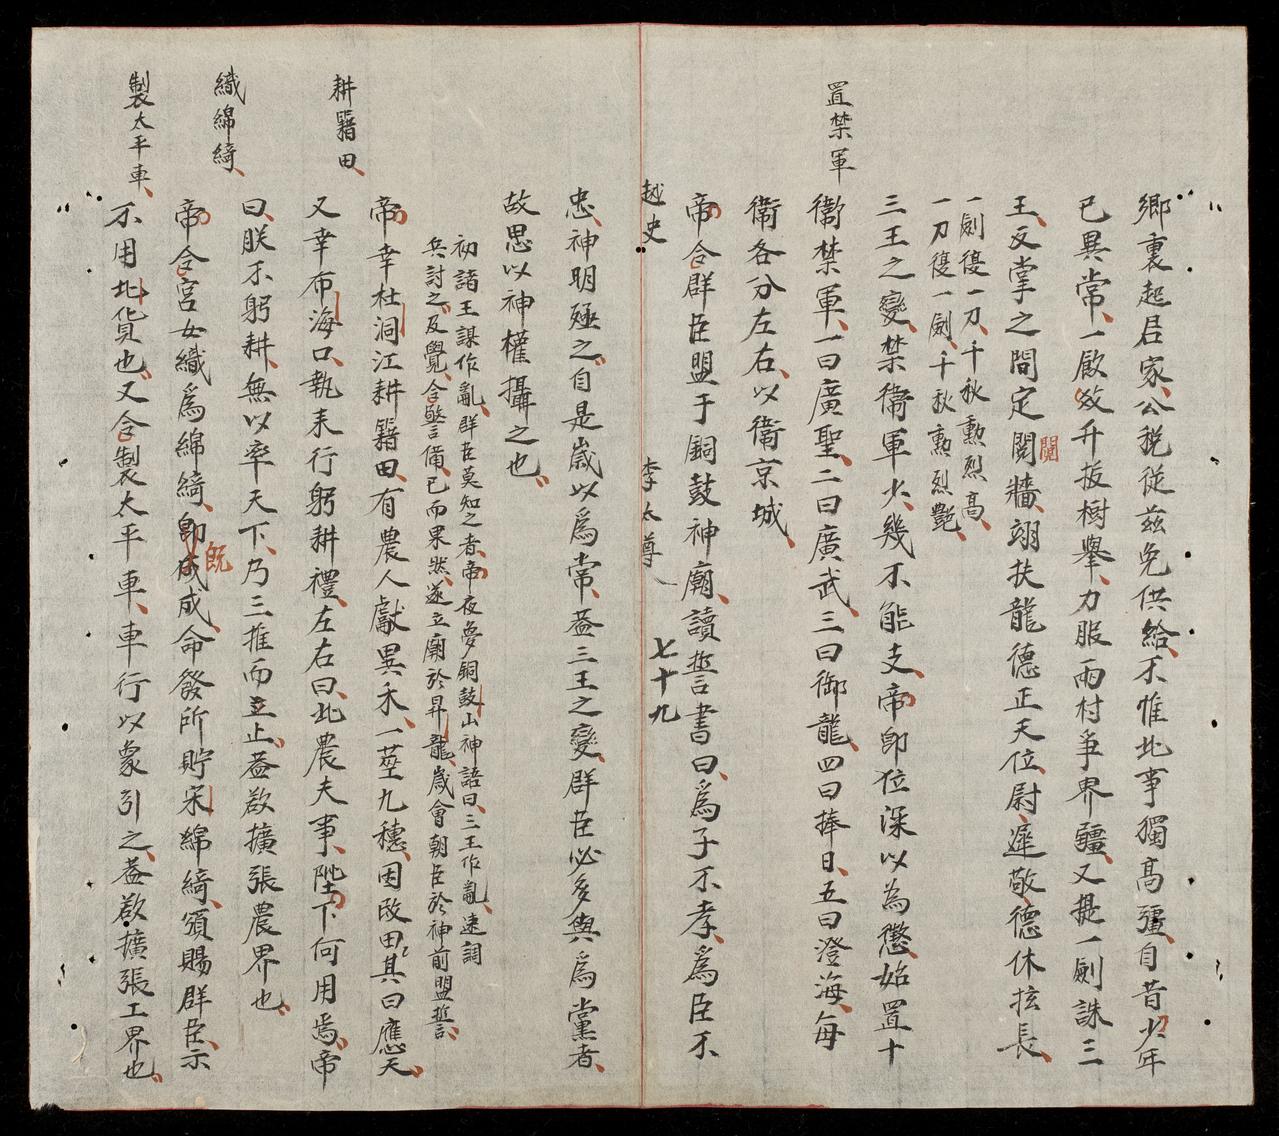 置禁軍
鄉裏起居家公稅從茲免供給不惟此事獨高疆自昔少年
已異常一厥效升扳樹舉力服兩村爭界疆又提一劍誅三
王反掌之間定鬩牆翊扶龍德正天位尉遲敬德休拡長
一劍復一刀千秋勳烈高
一刀復一劍千秋勳烈艷
三王之變禁衛軍少幾不能支帝即位深以為懲始置十
衞禁軍一曰廣聖二曰廣武三曰御龍四曰捧日五曰澄海每
衞各分左右以衞京城
帝令群臣盟于銅鼓神廟讀誓書曰爲子不孝爲臣不
越史 李太尊 七十九
忠神明殛之自是歲以爲常蓋三王之變群臣必多與爲黨者
故思以神權攝之也
初諸王謀作亂群臣莫知之者帝夜夢銅鼓山神語曰三王作亂速調
兵討之及覺令警備已而果然遂立廟於昇龍歲會朝臣於神前盟誓
耕籍田
帝幸杜洞江耕籍田有農人獻異禾一莖九穗因改田其曰應天
又幸布海口執耒行躬耕禮左右曰此農夫事陛下何用焉帝
曰朕不躬耕無以率天下乃三推而止蓋欲擴張農界也
織綿綺
帝令宮女織爲綿綺既成命發所貯宋綿綺頒賜群臣示
製太平車
不用北貨也又令製太平車車行以象引之蓋欲擴張工界也